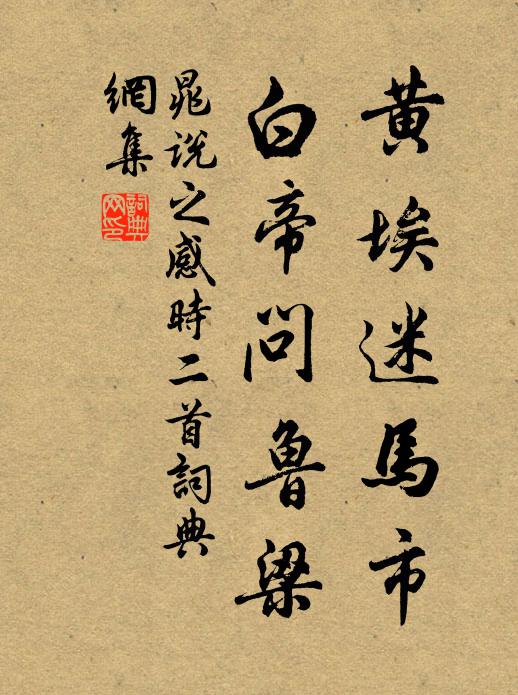 黃埃迷馬市
白帝問魯梁
晁說之感時二首詞典
網集
詞典
网印